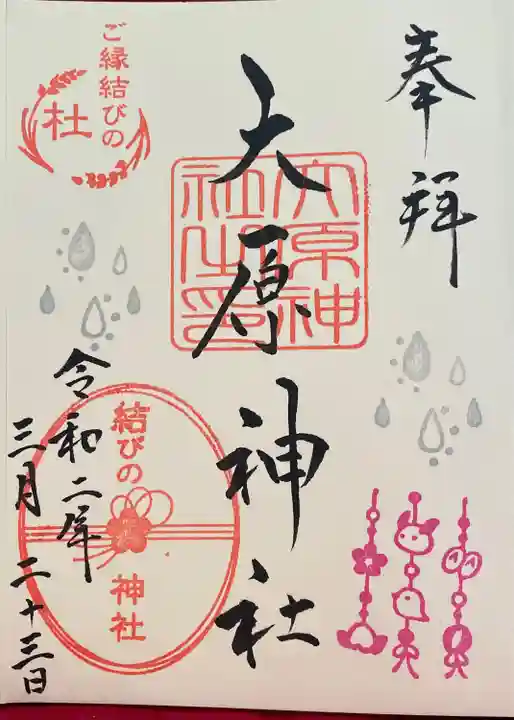 奉拝
大原神社
大原神
社之印
ご縁結びの
杜
結びの
神社
令和二年
三月二十三日